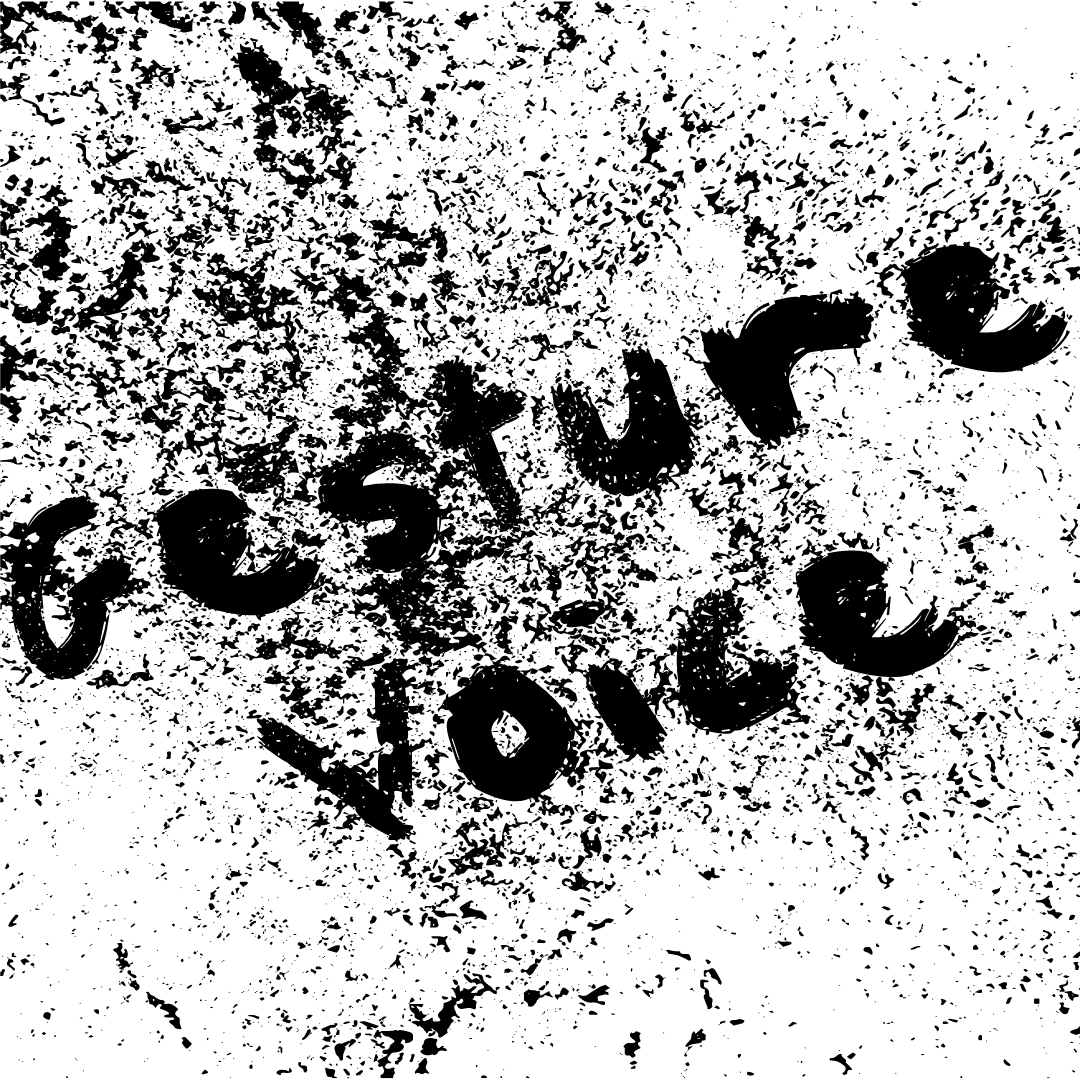 Gesture
Voice